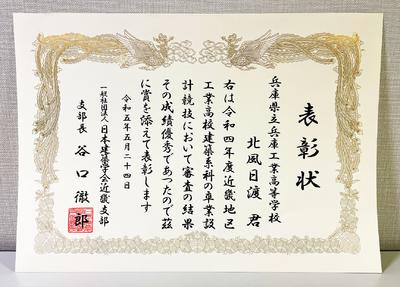 表彰状
兵庫県立兵庫工業高等学校
北風日渡 君
右は令和四年度近畿地区
工業高校建築系科の卒業設
計競技において審査の結果
その成績優秀であつたので茲
に賞を添えて表彰します
令和五年五月二十四日
一般社団法人日本建築学会近畿支部
支部長 谷口徹郎